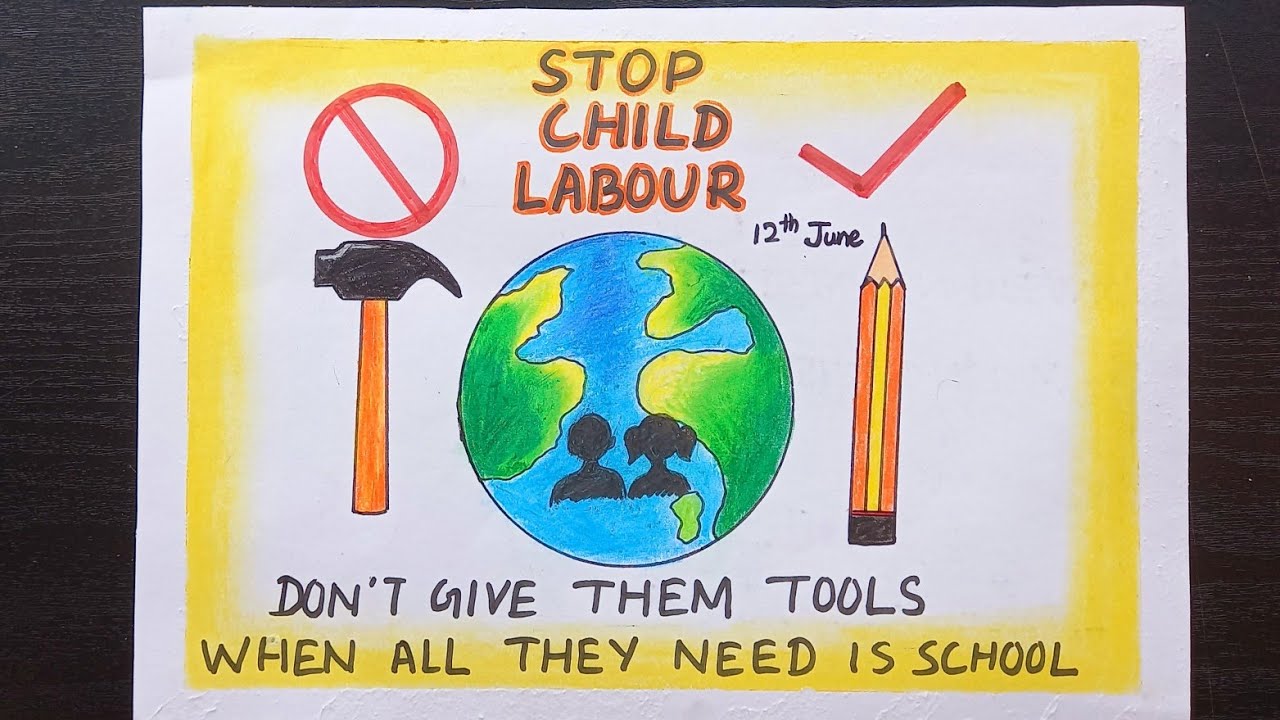 STOP
CHILD
LABOUR
12th June
DON'T GIVE THEM TOOLS
WHEN ALL THEY NEED IS SCHOOL